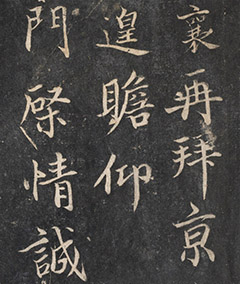 襄再拜京
遑瞻仰
門棨情誠